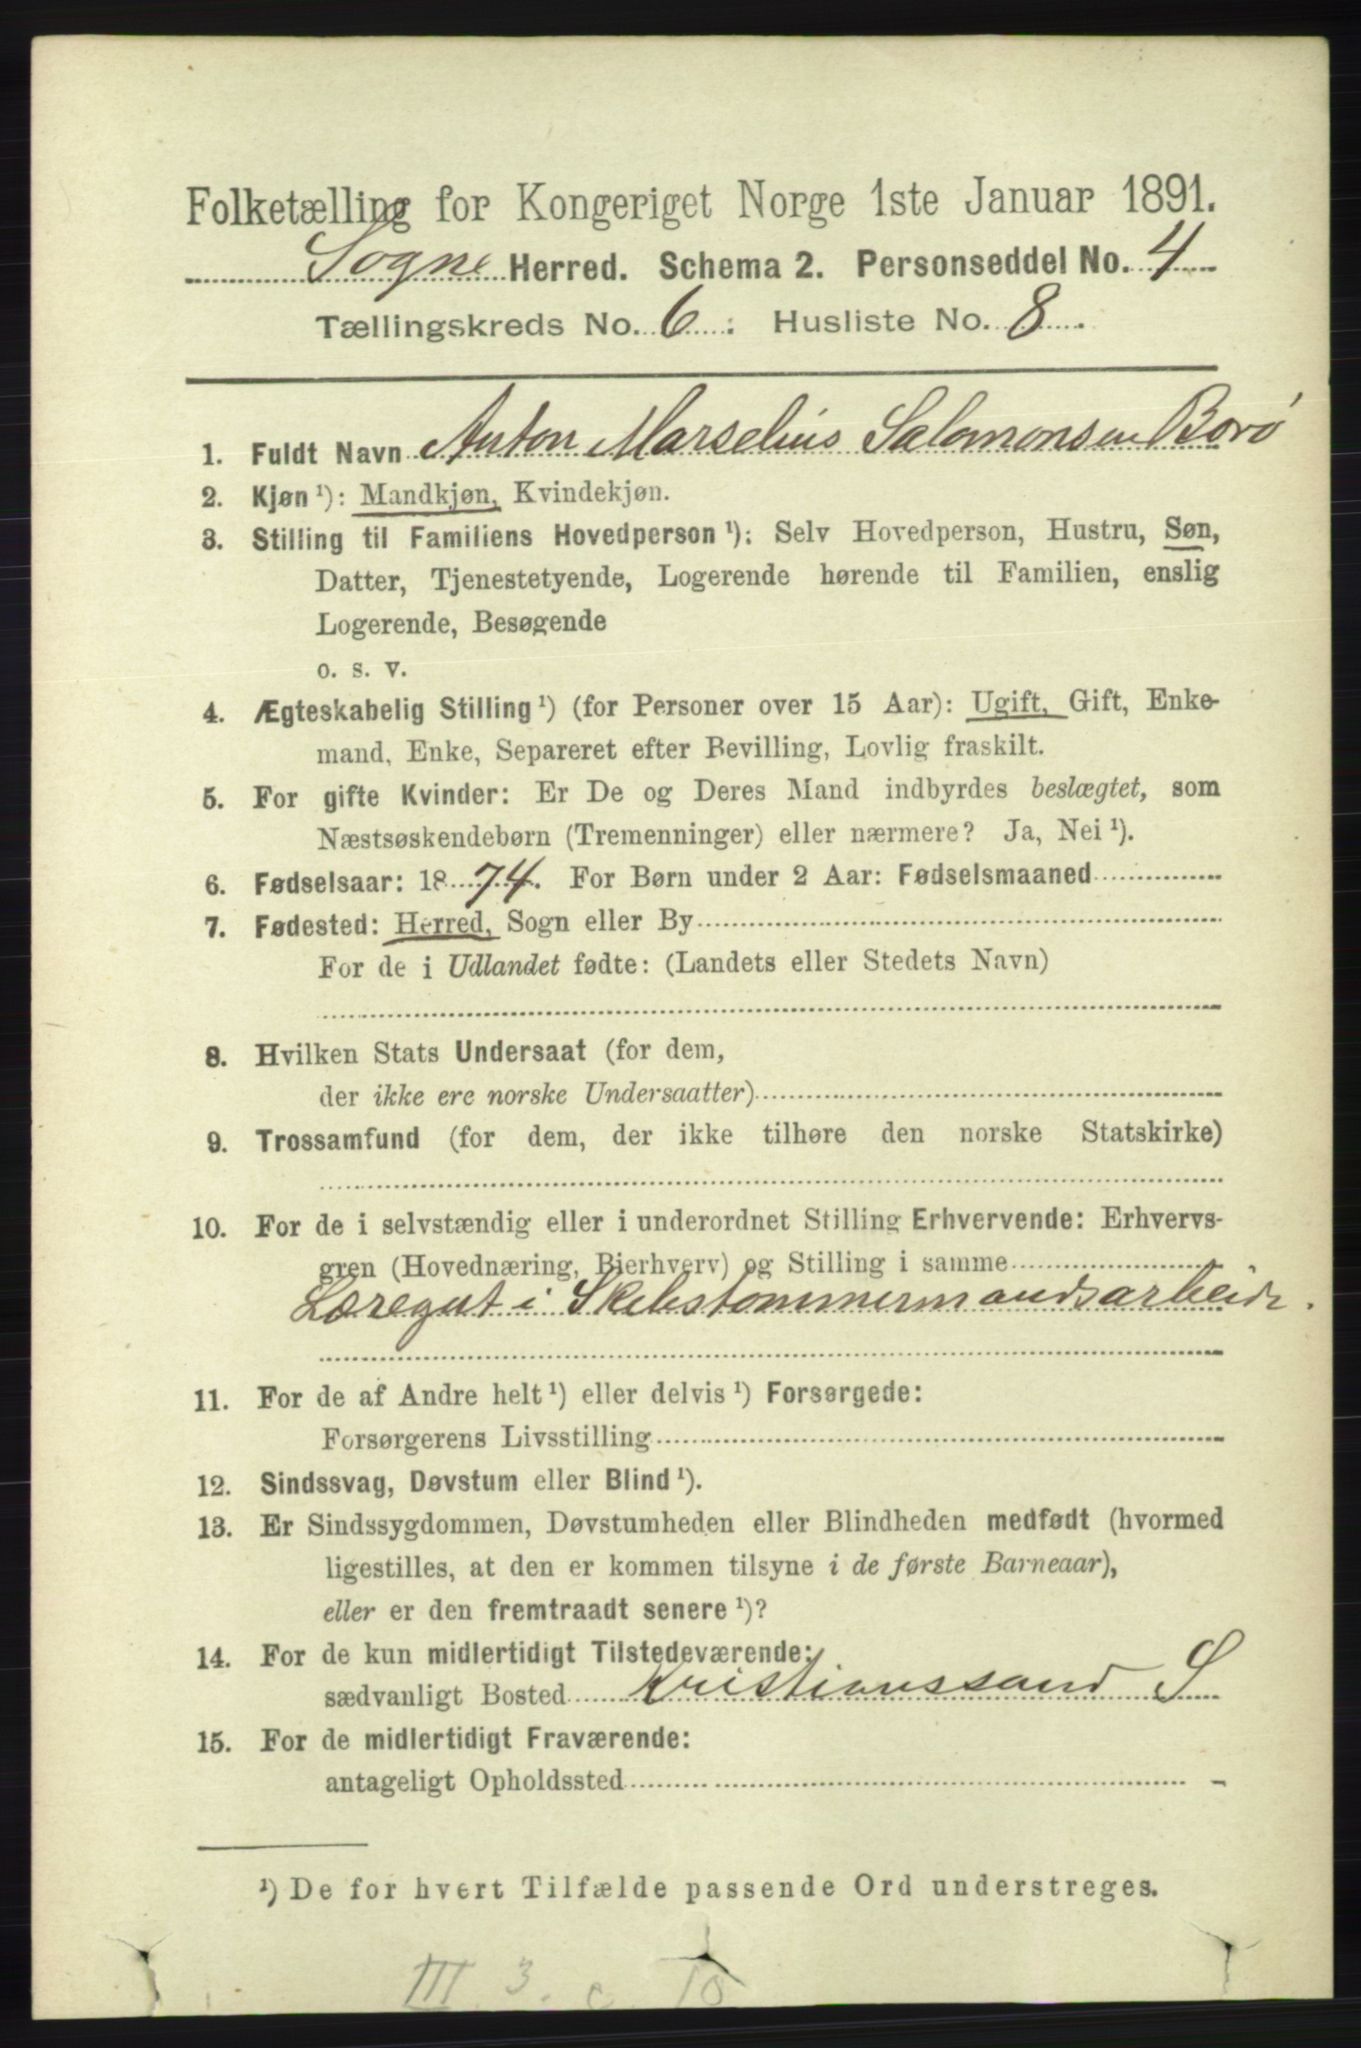 Folketælling for Kongeriget Norge 1ste Januar 1891.
Sogne Herred. Schema 2. Personseddel No. 4
Tællingskreds No. 6. : Husliste No. 8.
1. Fuldt Navn Anton Marselius Salomonsen Borø
2. Kjøn ¹): Mandkjøn, Kvindekjøn.
3. Stilling til Familiens Hovedperson ¹): Selv Hovedperson, Hustru, Søn,
Datter, Tjenestetyende, Logerende hørende til Familien, enslig
Logerende, Besøgende
o. s. v.
4. Ægteskabelig Stilling ¹) (for Personer over 15 Aar): Ugift, Gift, Enke-
mand, Enke, Separeret efter Bevilling, Lovlig fraskilt.
5. For gifte Kvinder: Er De og Deres Mand indbyrdes beslægtet, som
Næstsøskendebørn (Tremenninger) eller nærmere? Ja, Nei ¹).
6. Fødselsaar: 1874. For Børn under 2 Aar: Fødselsmaaned
7. Fødested: Herred, Sogn eller By
For de i Udlandet fødte: (Landets eller Stedets Navn)
8. Hvilken Stats Undersaat (for dem,
der ikke ere norske Undersaatter)
9. Trossamfund (for dem, der ikke tilhøre den norske Statskirke)
10. For de i selvstændig eller i underordnet Stilling Erhvervende: Erhvervs-
gren (Hovednæring, Bierhverv) og Stilling i samme
Læregut i Skibstommermandsarbeide.
11. For de af Andre helt ¹) eller delvis ¹) Forsørgede:
Forsørgerens Livsstilling
12. Sindssvag, Døvstum eller Blind ¹).
13. Er Sindssygdommen, Døvstumheden eller Blindheden medfødt (hvormed
ligestilles, at den er kommen tilsyne i de første Barneaar),
eller er den fremtraadt senere ¹)?
14. For de kun midlertidigt Tilstedeværende:
sædvanligt Bosted Kristianssand S
15. For de midlertidigt Fraværende:
antageligt Opholdssted
¹) De for hvert Tilfælde passende Ord understreges.
III 3. c 10